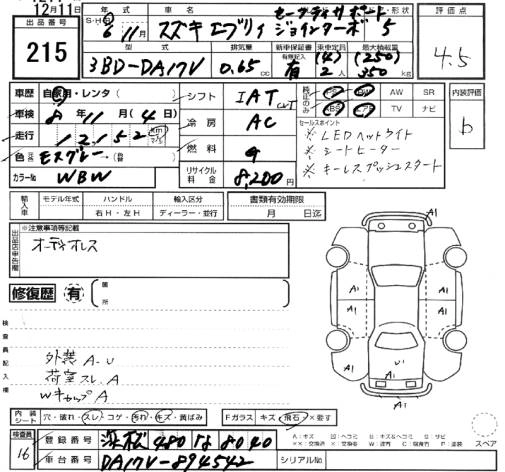 12月11日
出品番号
215
年式
S・H
6年11月
車名
スズキ エブリイ セーフティサポート ジョインターボ
形状
5
型式
3BD-DA17V
排気量
0.65 cc
新車保証書
有 有無記入
乗車定員
(4) 2人
最大積載量
(250) 350 kg
評価点
4.5
車歴 自家用・レンタ(
車検 8年11月(4日)
走行 12152 km
色 モスグレー→(
カラーNo WBW
シフト IAT CVT
冷房 AC
燃料 G
リサイクル料金 8,200円
純正のみ PS PW AW SR
TV ナビ
セールスポイント
※ LEDヘッドライト
※ シートヒーター
※ キーレスプッシュスタート
内装評価
b
輸入車
モデル年式
ハンドル
右H・左H
輸入区分
ディーラー・並行
書類有効期限
月 日迄
出品店申告欄
※注意事項等記載
オーディオレス
修復歴 有
箇所
検査員記入欄
外装 A.U
荷室スレ.A
WキャップA
A1
A1
A1
A1
A1
U1
A1
内装シート 穴・破れ・スレ・コゲ・汚れ・キズ・黄ばみ
Fガラス キズ・飛石・×要す
検査員
16
登録番号 浜松 480 な 8040
車台番号 DA17V-894542
シリアルNo
スペア